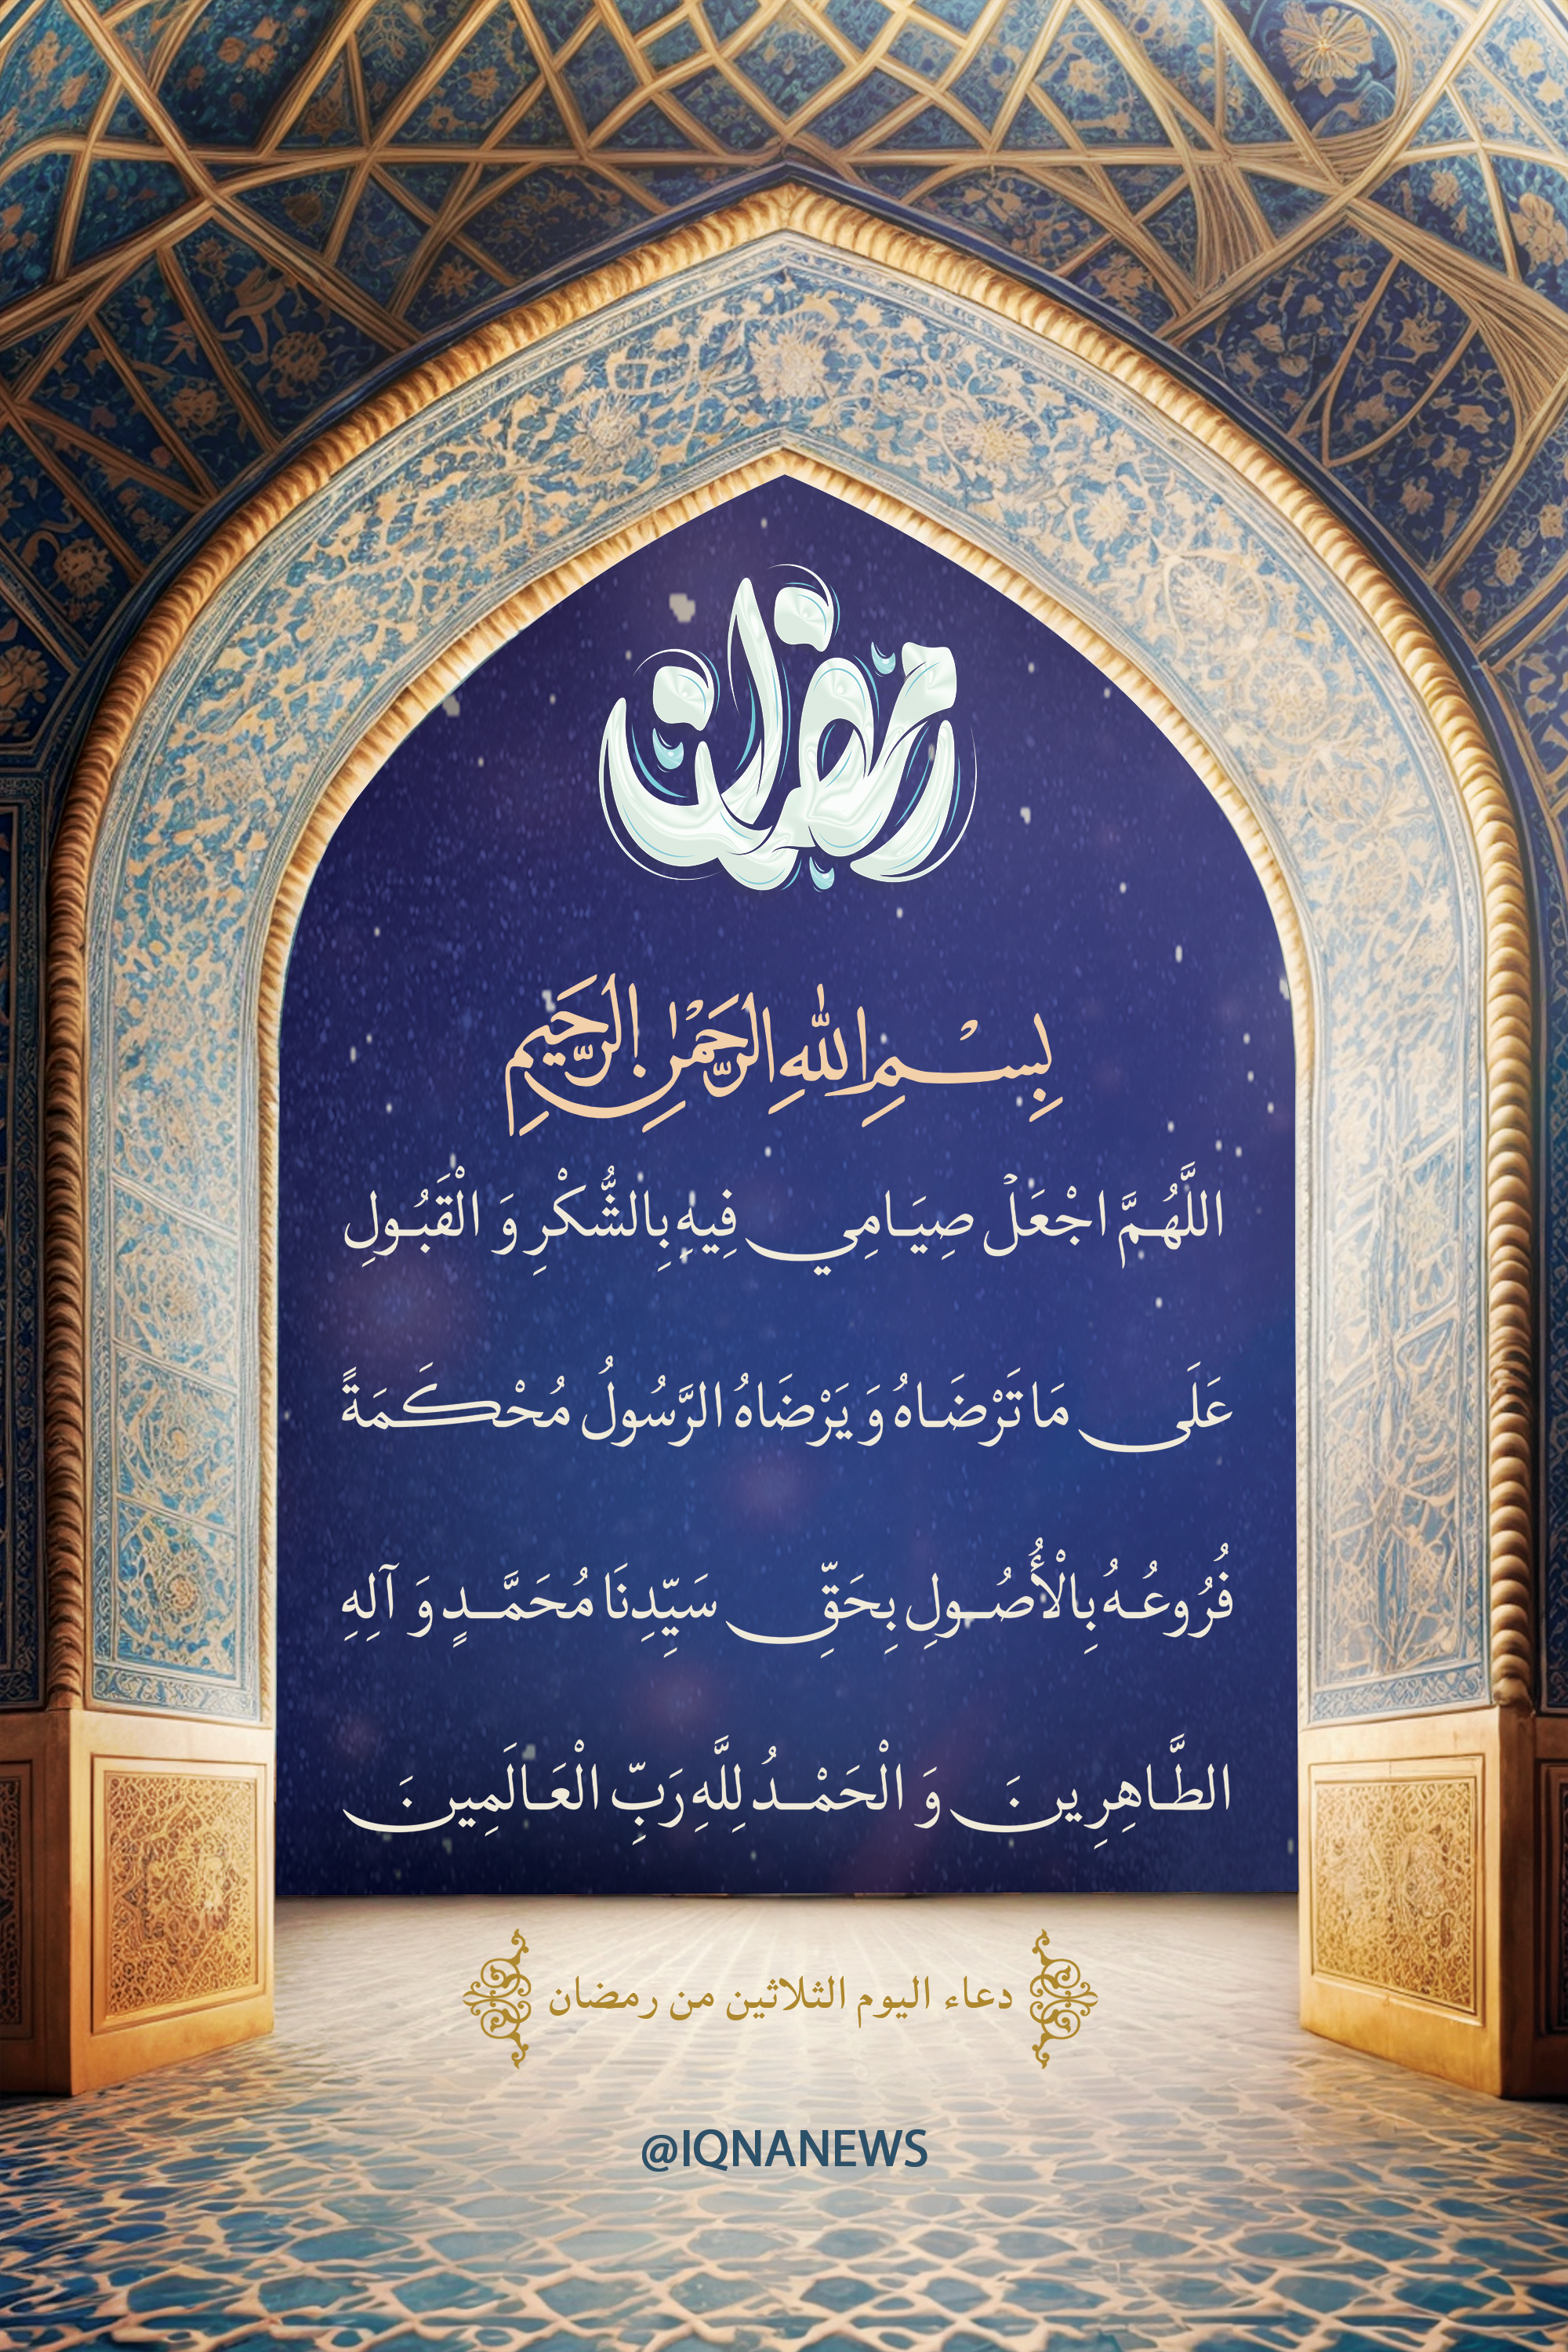 رمضان
بِسْمِ اللَّهِ الرَّحْمَٰنِ الرَّحِيمِ
اللَّهُمَّ اجْعَلْ صِيَامِي فِيهِ بِالشُّكْرِ وَ الْقَبُولِ
عَلَى مَا تَرْضَاهُ وَ يَرْضَاهُ الرَّسُولُ مُحْكَمَةً
فُرُوعُهُ بِالْأُصُولِ بِحَقِّ سَيِّدِنَا مُحَمَّدٍ وَ آلِهِ
الطَّاهِرِينَ وَ الْحَمْدُ لِلَّهِ رَبِّ الْعَالَمِينَ
دعاء اليوم الثلاثين من رمضان
@IQNANEWS